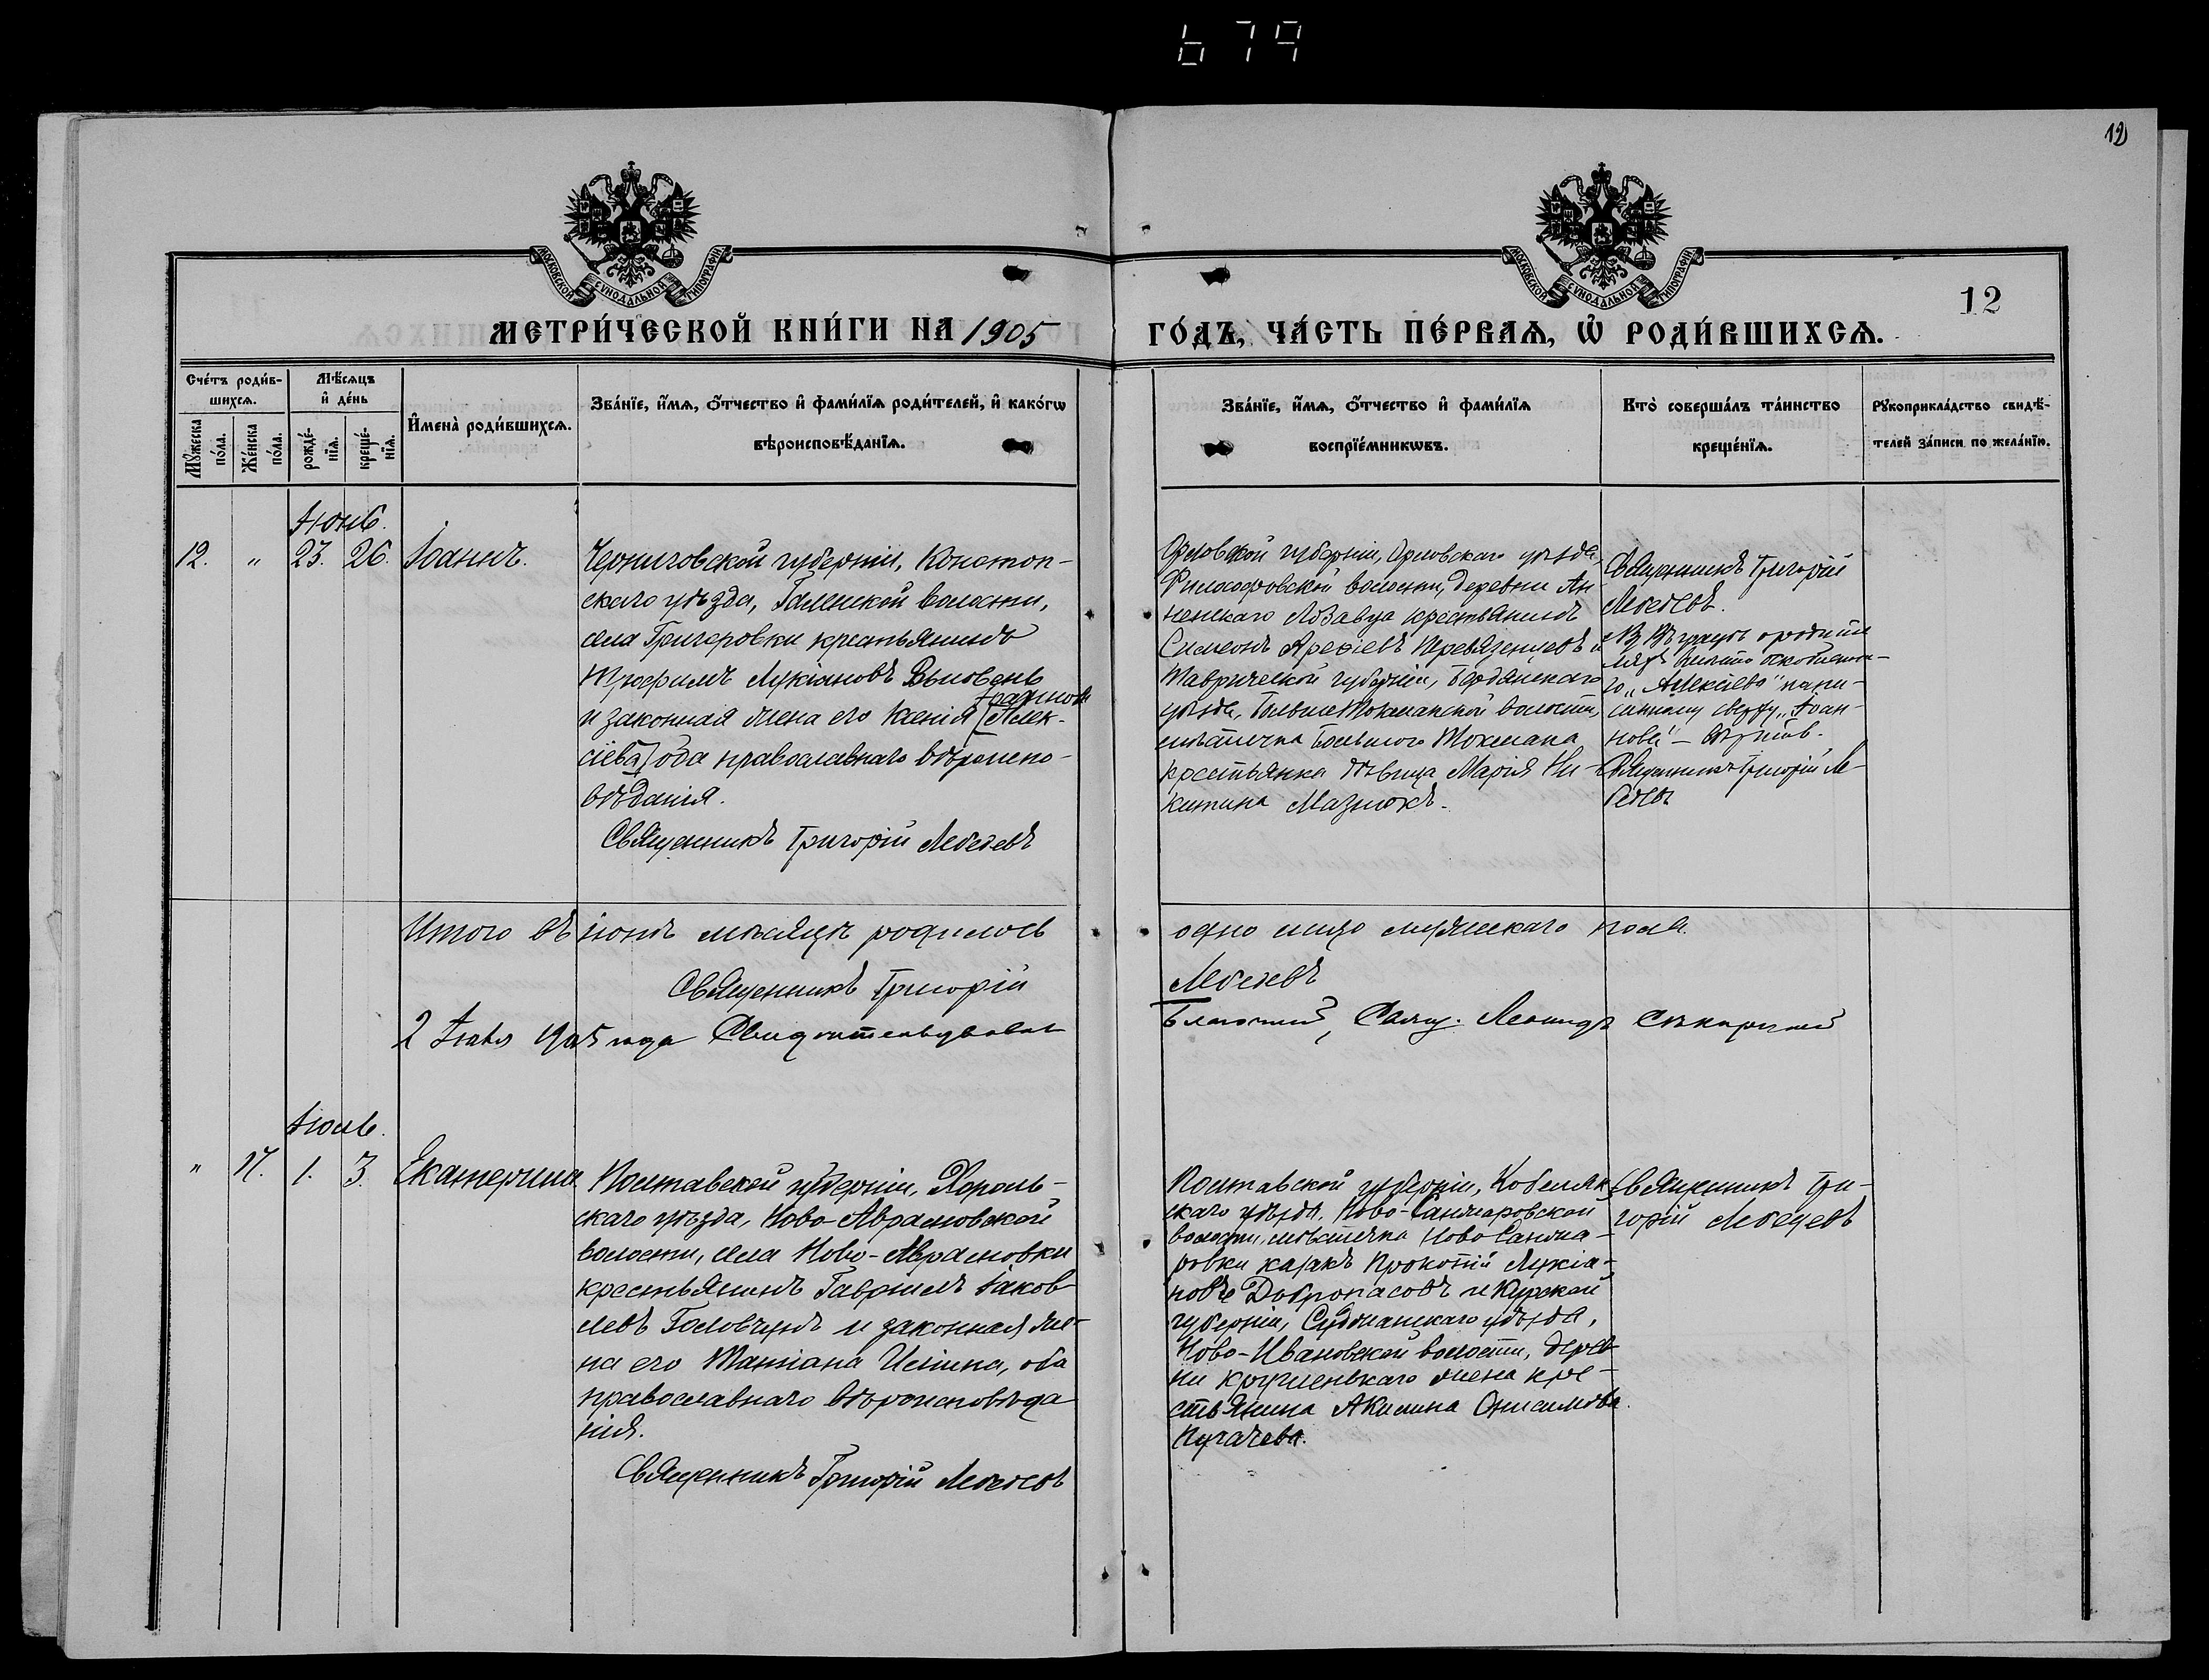 679
12
12
МОСКОВСКОЙ СѴНОДАЛЬНОЙ ТИПОГРАФІИ
МОСКОВСКОЙ СѴНОДАЛЬНОЙ ТИПОГРАФІИ
МЕТРИ́ЧЕСКОЙ КНИ́ГИ НА 1905
ГО́ДЪ, ЧА́СТЬ ПЕ́РВАѦ, Ѡ҆ РОДИ́ВШИХСѦ.
Сче́тъ роди́в-
шихсѧ.
Мꙋ́жеска по́ла.
Же́нска по́ла.
Мѣ́сѧцъ
и҆ де́нь
рожде́-
нїѧ.
креще́-
нїѧ.
И҆мена̀ роди́вшихсѧ.
Зва́нїе, и҆́мѧ, ѻ҆́тчество и҆ фами́лїѧ роди́телей, и҆ како́гѡ
вѣроисповѣ́данїѧ.
Зва́нїе, и҆́мѧ, ѻ҆́тчество и҆ фами́лїѧ
воспрїе́мникѡвъ.
Кто̀ соверша́лъ та́инство
креще́нїѧ.
Рꙋкоприкла́дство свидѣ́-
телей за́писи по жела́нїю.
Іюнь.
12. " 23. 26. Іоаннъ.
Черниговской губерніи, Конотоп-
скаго уѣзда, волости,
села Григоровки крестьянинъ
Трофимъ Лукіановъ
и законная жена его Ксенія [Алек-
сіева] оба православнаго вѣроиспо-
вѣданія.
Священникъ Григорій Лебедевъ
Орловской губерніи, Орловскаго уѣзда,
Философовской волости, деревни Ан-
ненскаго крестьянинъ
Симеонъ и
Таврической губерніи, Бердянскаго
уѣзда, Больше Токмакской волости,
мѣстечка Большого Токмака
крестьянка дѣвица Марія Ни-
китина Мазнюкъ.
Священникъ Григорій
Лебедевъ.
Въ графѣ о родите-
ляхъ вмѣсто
го "Алексіева" напи-
санному сверху "Іоан-
нова" – вѣрить.
Священникъ Григорій Ле-
бедевъ
Итого въ іюнѣ мѣсяцѣ родилось
одно лицо мужескаго пола.
Священникъ Григорій
Лебедевъ
2 Іюля 1905 года Свидѣтельствовалъ
Благочинный, Свящ. Леонидъ
Іюль.
" 17. 1. 3. Екатерина
Полтавской губерніи, Хороль-
скаго уѣзда, Ново-Аврамовской
волости, села Ново-Аврамовки
крестьянинъ Гавріилъ Іаков-
левъ и законная же-
на его Татіана оба
православнаго вѣроисповѣда
нія.
Священникъ Григорій Лебедевъ
Полтавской губерніи, Кобеляк-
скаго уѣзда, Ново-Санжаровской
волости, мѣстечка Ново Санжа-
ровки казакъ Прокопій Лукіа-
новъ Добропасовъ и Курской
губерніи, Суджанскаго уѣзда,
Ново-Ивановской волости, дерев-
ни жена кре-
стьянина Акилина Онисимова
Пугачева.
Священникъ Гри-
горій Лебедевъ